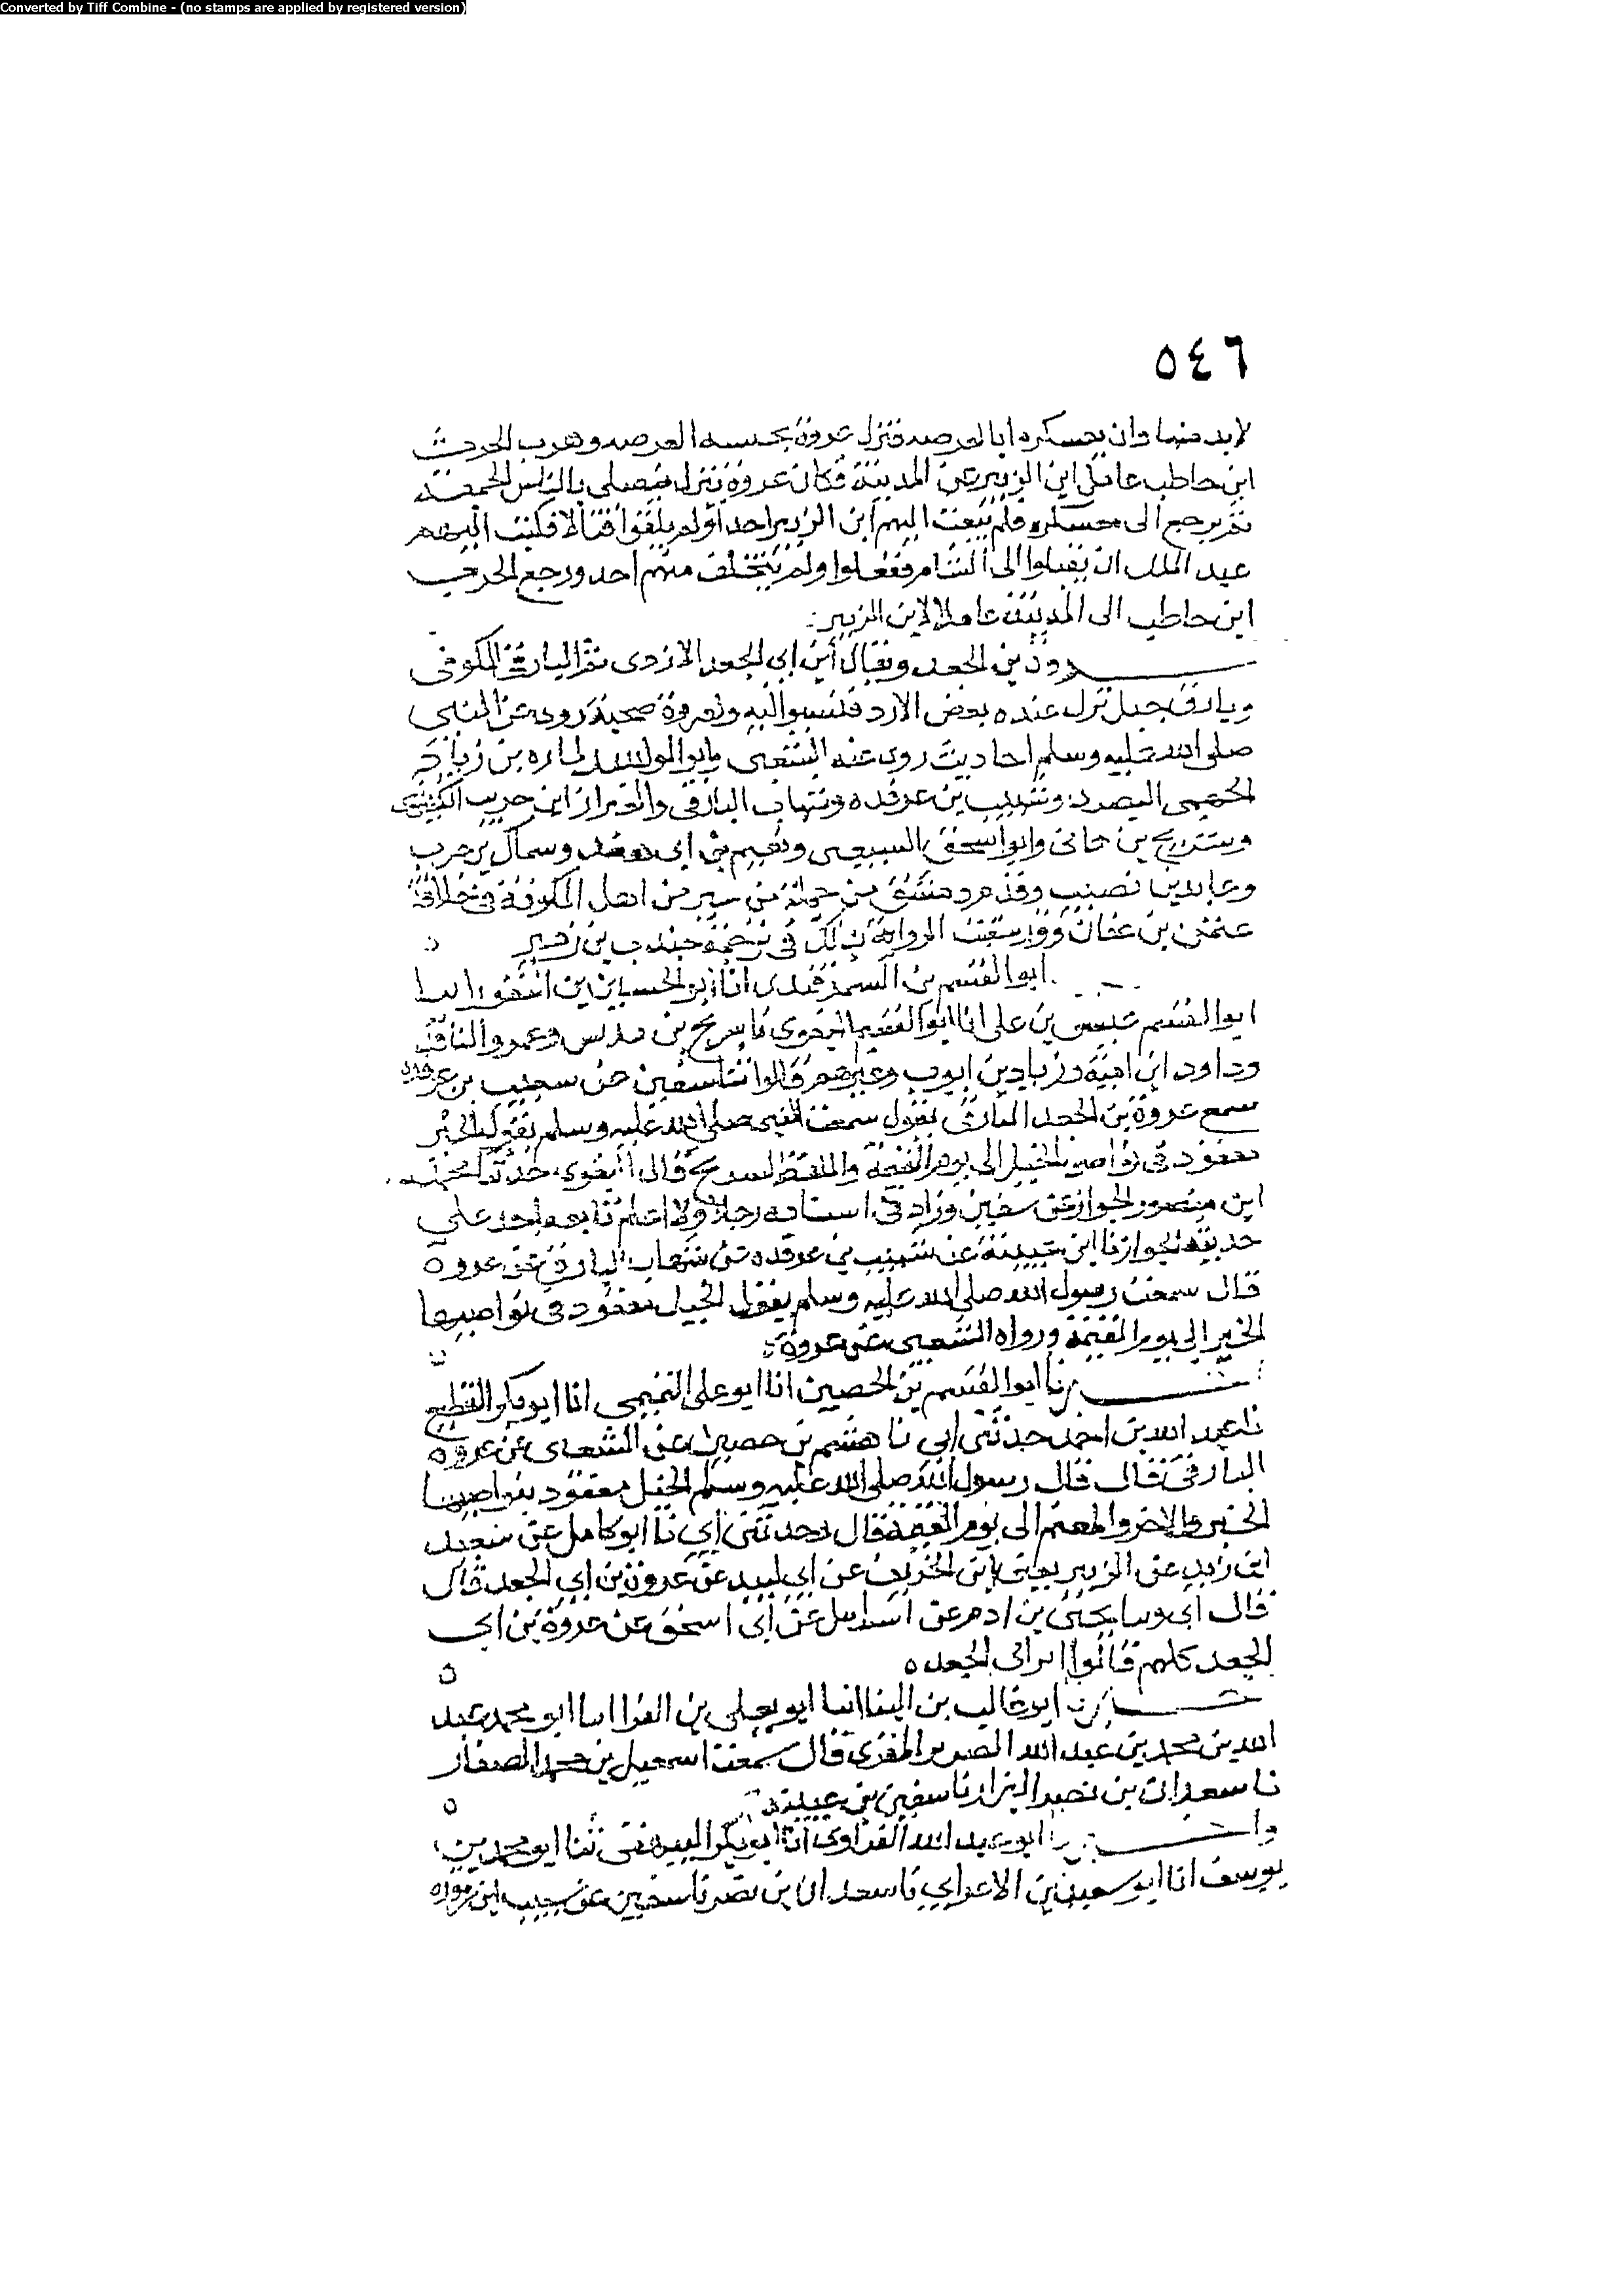 Converted by Tiff Combine - (no stamps are applied by registered version)
٥٤٦
لا يدخلها وان يعسكروا بالعرصه فنزل عروة بجيشه العرصه وهرب الحرث
ابن حاطب عامل ابن الزبير عن المدينة فكان عروة ينزل فيصلي بالناس الجمعة
ثم يرجع الى معسكره فلم يبعث اليهم ابن الزبير احدا ولم يلقوا قتالا فكتب اليهم
عبد الملك ان يقبلوا الى الشام ففعلوا ولم يتخلف منهم احد ورجع الحرث
ابن حاطب الى المدينة عاملا لابن الزبير
عروة بن الجعد ويقال ابن ابي الجعد الازدي ثم البارقي الكوفي
وبارق جبل نزل عنده بعض الازد فنسبوا اليه ولعروة صحبة روى عن النبي
صلى الله عليه وسلم احاديث روى عنه الشعبي وابو لبيد لمازه بن زباد
وشبيب بن غرقده وشهاب البارقي والعيزار ابن حريب
وشريح بن هانئ وابو اسحق السبيعي ونعيم بن ابي هند وسماك بن حرب
وعابد بن نصيب وقدم دمشق من جملة من سير من اهل الكوفة في خلافة
عثمن بن عفان وقد سقت الرواية بذلك في ترجمة جندب بن زهير
ابو القسم بن السمرقندي انا ابو الحسين بن النقور انبا
ابو القسم عيسى بن علي انا ابو القسم البغوي نا سريج بن يونس وعمرو الناقد
وداود ابن امية وزياد بن ايوب وغيرهم قالوا نا سفين عن شبيب بن غرقده
سمع عروة بن الجعد البارقي يقول سمعت النبي صلى الله عليه وسلم يقول الخير
معقود في نواصي الخيل الى يوم القيمة واللفظ لسريج قال البغوي حدثنا محمد
ابن منصور الجواز عن سفين وزاد في اسناده رجلا ولا اعلم تابعه احد على
حديثه الجواز نا ابن عيينة عن شبيب بن غرقده عن شهاب البارقي عن عروة
قال سمعت رسول الله صلى الله عليه وسلم يقول الخيل معقود في نواصيها
الخير الى يوم القيمة ورواه الشعبي عن عروة
اخبرنا ابو القسم بن الحصين انا ابو علي التميمي انا ابو بكر القطيعي
نا عبد الله بن احمد حدثني ابي نا هشيم بن حصين عن الشعبي عن عروة
البارقي قال قال رسول الله صلى الله عليه وسلم الخيل معقود بنواصيها
الخير والاجر والمغنم الى يوم القيمة قال وحدثني ابي نا ابو كامل عن سعيد
ابن زيد عن الزبير يعني ابن الخريت عن ابي لبيد عن عروة بن ابي الجعد قال
قال ابي ونا يحيى بن ادم عن اسرائيل عن ابي اسحق عن عروة بن ابي
الجعد كلهم قالوا ابن ابي الجعد
اخبرنا ابو غالب بن البنا انبا ابو يعلى بن الفرا انبا ابو محمد عبد
الله بن محمد بن عبد الله الضرير المقرئ قال سمعت اسمعيل بن محمد الصفار
نا سعدان بن نصر البزار نا سفين بن عيينة
واخبرنا ابو عبد الله الفراوي انا ابو بكر البيهقي ثنا ابو محمد بن
يوسف انا ابو سعيد بن الاعرابي نا سعدان بن نصر نا سفين عن شبيب ابن غرقده